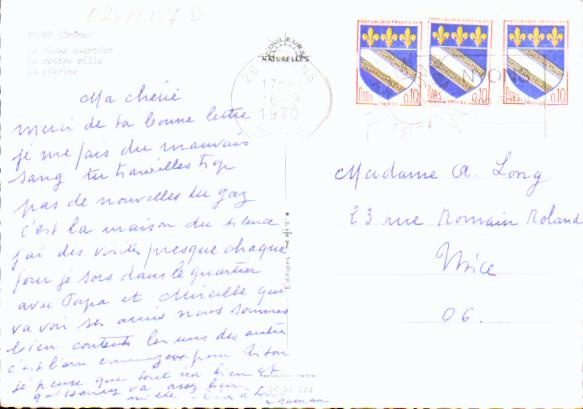 NYONS (Drôme)
Le vieux quartier
Le centre ville
La piscine
COULEURS
NATURELLES
26 NYONS
1970
NYONS
REPUBLIQUE FRANÇAISE
REPUBLIQUE FRANÇAISE
REPUBLIQUE FRANÇAISE
0,10
0,10
0,10
Ma chérie
merci de ta bonne lettre
je me fais du mauvais
sang tu travailles trop
pas de nouvelles du gaz
c'est la maison du silence
j'ai des visites presque chaque
jour je sors dans le quartier
avec Papa et Mireille qui
va voir ses amis nous sommes
bien contents les uns des autres
c'est bien ennuyeux pour
je pense que tout va bien et
va assez bien
Maman
Editions
Madame A. Long
23 rue Romain Roland
Nice
06.